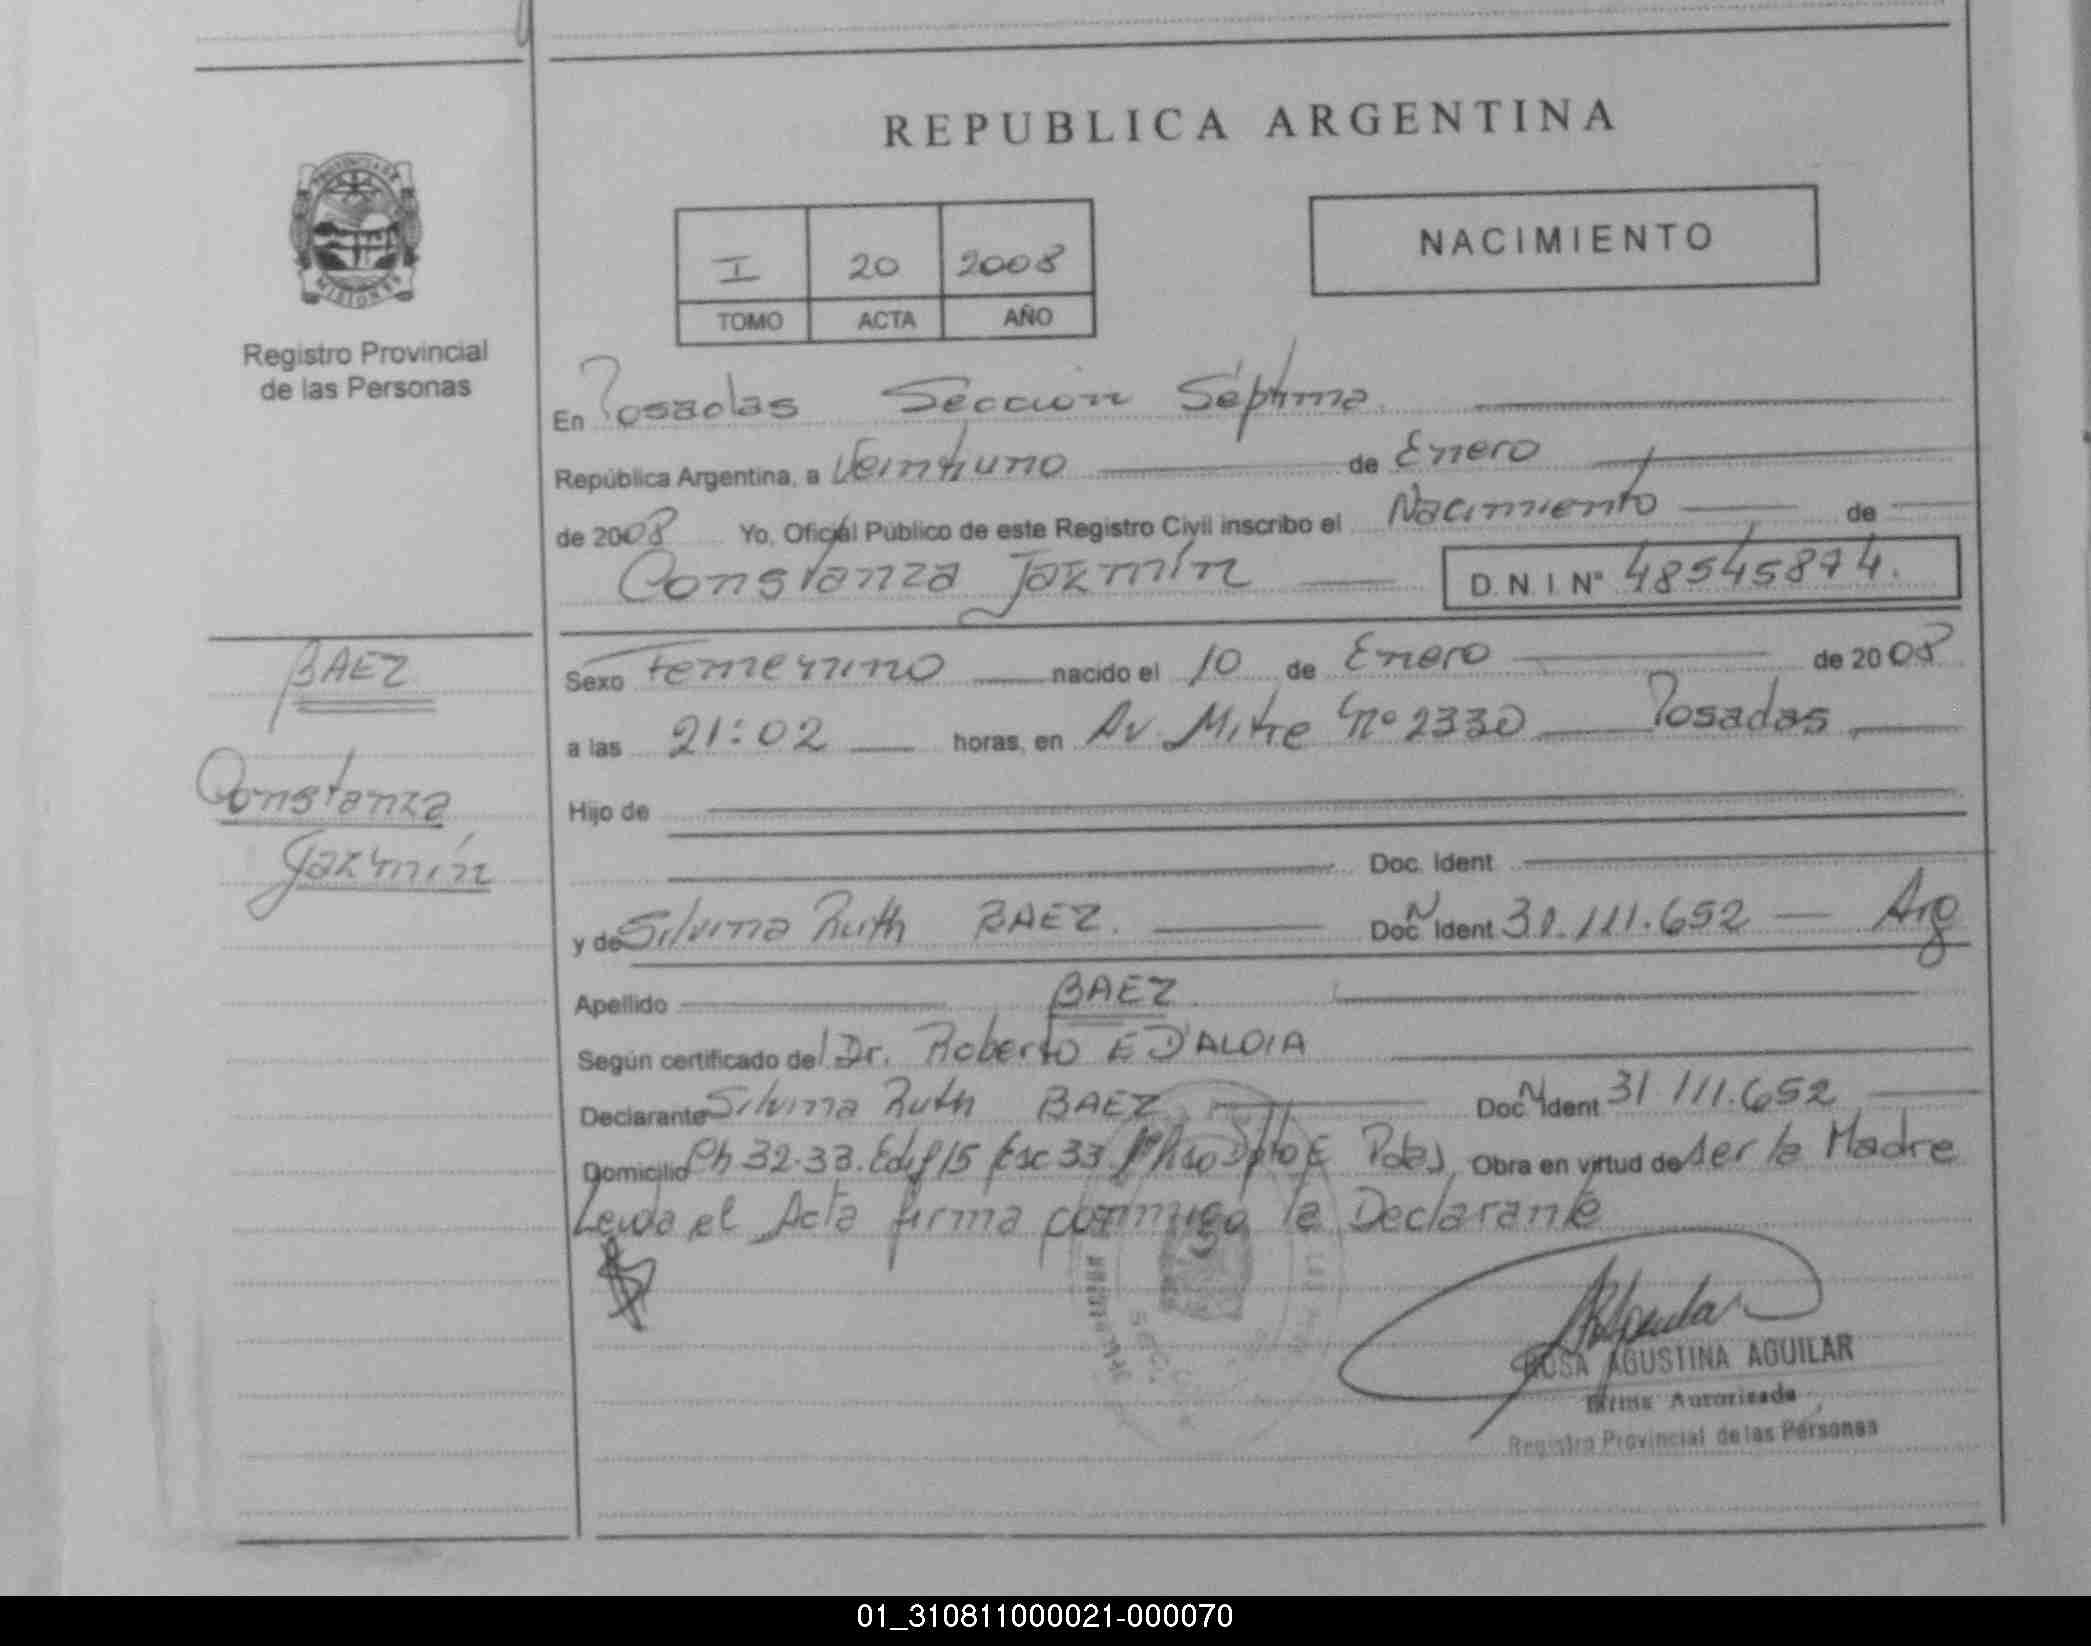 REPUBLICA ARGENTINA
PROVINCIA DE
MISIONES
Registro Provincial
de las Personas
I 20 2008
TOMO ACTA AÑO
NACIMIENTO
En Posadas Sección Séptima
República Argentina, a Veintiuno de Enero
de 2008 Yo, Oficial Público de este Registro Civil inscribo el Nacimiento de
Constanza Jazmín D.N.I Nº 48545874.
BAEZ
Constanza
Jazmín
Sexo Femenino nacido el 10 de Enero de 2008
a las 21:02 horas, en Av. Mitre Nº 2330 Posadas
Hijo de
Doc. Ident
y de Silvina Ruth BAEZ. Doc N Ident 31.111.652 Arg
Apellido BAEZ
Según certificado del Dr. Roberto E D'ALOIA
Declarante Silvina Ruth BAEZ Doc N Ident 31 111.652
Domicilio Ch 32-33. Edif 15 Esc 33 Piso Dpto E Pdas Obra en virtud de ser la Madre
Leida el Acta firma conmigo la Declarante
ROSA AGUSTINA AGUILAR
Firma Autorizada
Registro Provincial de las Personas
01_310811000021-000070